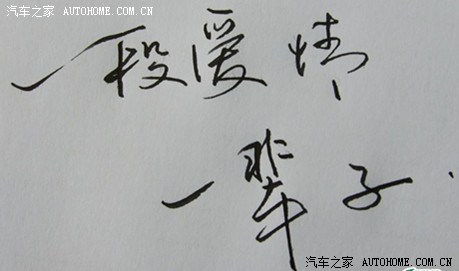 汽车之家 AUTOHOME.COM.CN
一段爱情
一辈子.
汽车之家 AUTOHOME.COM.CN